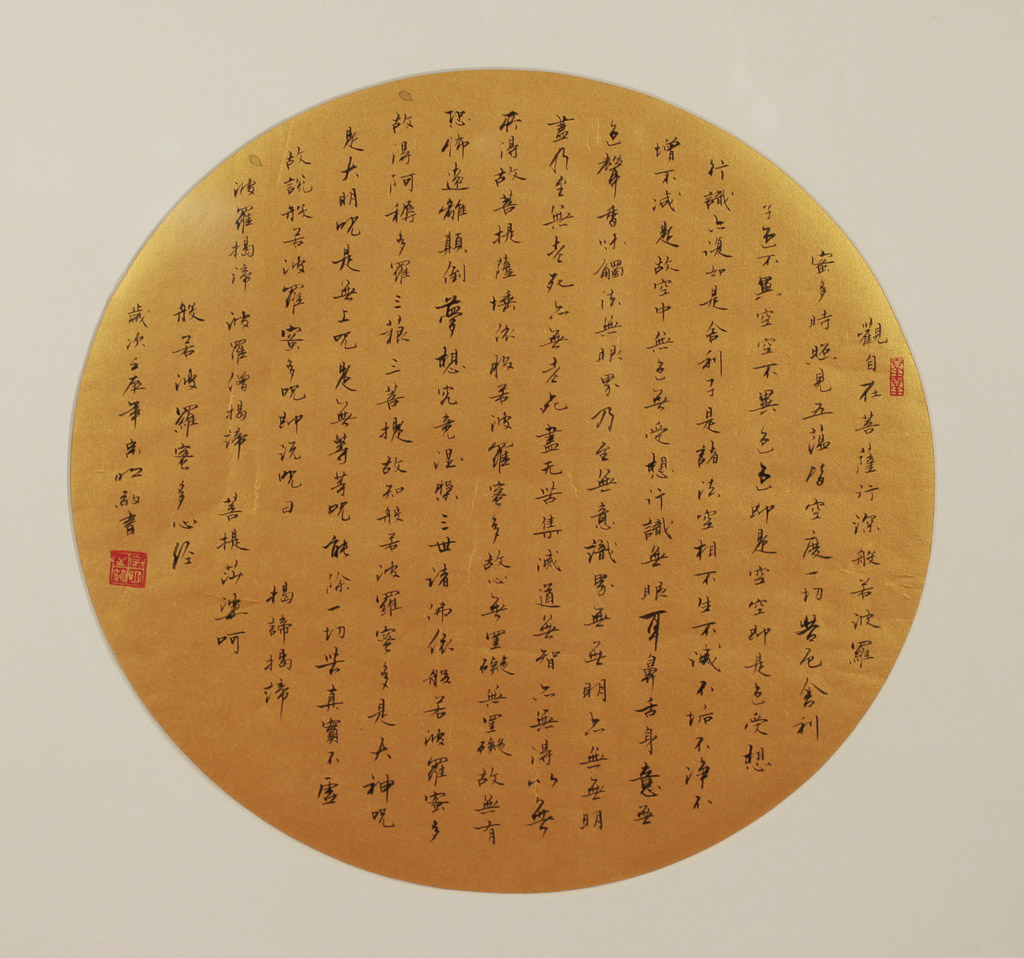 觀自在菩薩行深般若波羅
蜜多時照見五蕴皆空度一切苦厄舍利
子色不異空空不異色色即是空空即是色受想
行識亦復如是舍利子是諸法空相不生不滅不垢不净不
增不减是故空中無色無受想行識無眼耳鼻舌身意無
色聲香味觸法無眼界乃至無意識界無無明亦無無明
盡乃至無老死亦無老死盡无苦集滅道無智亦無得以無
所得故菩提薩埵依般若波羅蜜多故心無罣礙無罣礙故無有
恐怖遠離顛倒夢想究竟涅槃三世诸佛依般若波羅蜜多
故得阿耨多羅三藐三菩提故知般若波羅蜜多是大神咒
是大明咒是無上咒是無等等咒能除一切苦真實不虚
故説般若波羅蜜多咒即说咒曰 揭諦揭諦
波羅揭諦 波羅僧揭諦 菩提莎婆呵
般若波羅蜜多心经
歲次壬辰年 敬書